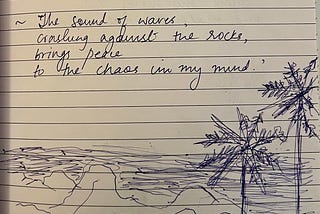 ~ The sound of waves,
crashing against the rocks,
brings peace
to the chaos in my mind.'